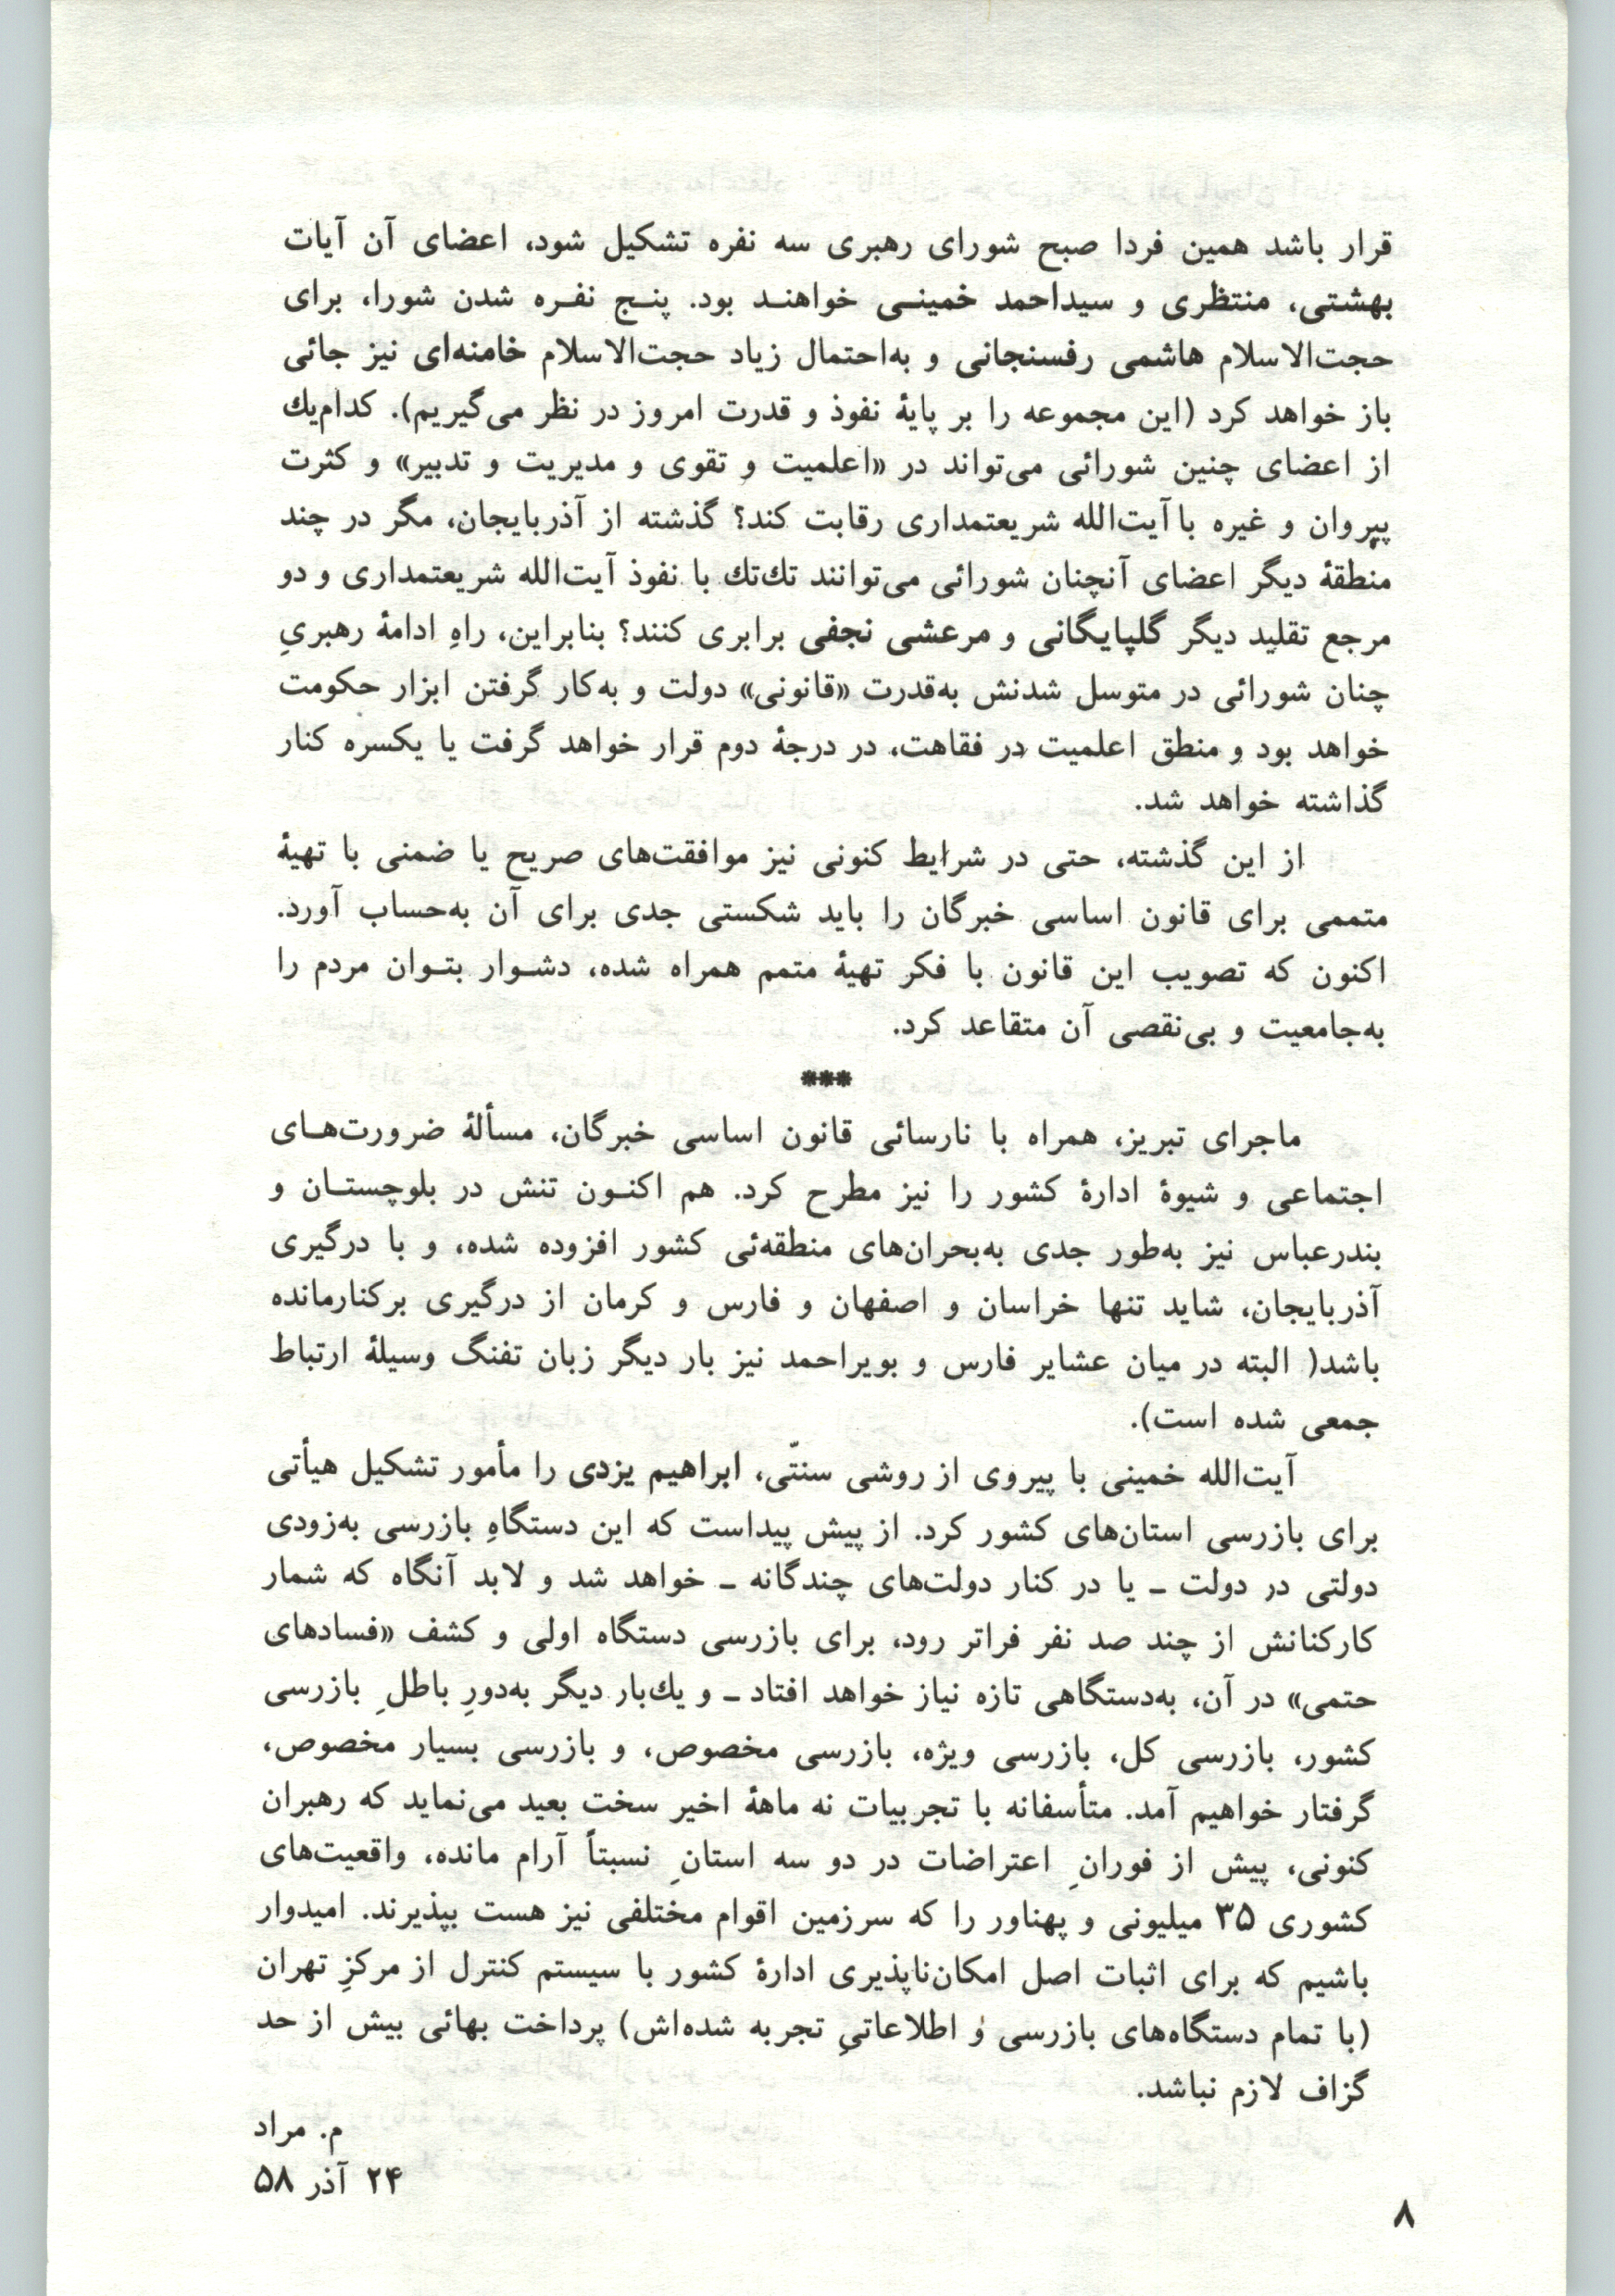 قرار باشد همین فردا صبح شورای رهبری سه نفره تشکیل شود، اعضای آن آیات
بهشتی، منتظری و سیداحمد خمینی خواهند بود. پنج نفره شدن شورا، برای
حجت‌الاسلام هاشمی رفسنجانی و به‌احتمال زیاد حجت‌الاسلام خامنه‌ای نیز جائی
باز خواهد کرد (این مجموعه را بر پایهٔ نفوذ و قدرت امروز در نظر می‌گیریم). کدام‌یك
از اعضای چنین شورائی می‌تواند در «اعلمیت و تقوی و مدیریت و تدبیر» و کثرت
پیروان و غیره با آیت‌الله شریعتمداری رقابت کند؟ گذشته از آذربایجان، مگر در چند
منطقهٔ دیگر اعضای آنچنان شورائی می‌توانند تك‌تك با نفوذ آیت‌الله شریعتمداری و دو
مرجع تقلید دیگر گلپایگانی و مرعشی نجفی برابری کنند؟ بنابراین، راهِ ادامهٔ رهبریِ
چنان شورائی در متوسل شدنش به‌قدرت «قانونی» دولت و به‌کار گرفتن ابزار حکومت
خواهد بود و منطق اعلمیت در فقاهت، در درجهٔ دوم قرار خواهد گرفت یا یکسره کنار
گذاشته خواهد شد.
از این گذشته، حتی در شرایط کنونی نیز موافقت‌های صریح یا ضمنی با تهیهٔ
متممی برای قانون اساسی خبرگان را باید شکستی جدی برای آن به‌حساب آورد.
اکنون که تصویب این قانون با فکر تهیهٔ متمم همراه شده، دشوار بتوان مردم را
به‌جامعیت و بی‌نقصی آن متقاعد کرد.
***
ماجرای تبریز، همراه با نارسائی قانون اساسی خبرگان، مسألهٔ ضرورت‌های
اجتماعی و شیوهٔ ادارهٔ کشور را نیز مطرح کرد. هم اکنون تنش در بلوچستان و
بندرعباس نیز به‌طور جدی به‌بحران‌های منطقه‌ئی کشور افزوده شده، و با درگیری
آذربایجان، شاید تنها خراسان و اصفهان و فارس و کرمان از درگیری برکنارمانده
باشد( البته در میان عشایر فارس و بویراحمد نیز بار دیگر زبان تفنگ وسیلهٔ ارتباط
جمعی شده است).
آیت‌الله خمینی با پیروی از روشی سنتّی، ابراهیم یزدی را مأمور تشکیل هیأتی
برای بازرسی استان‌های کشور کرد. از پیش پیداست که این دستگاهِ بازرسی به‌زودی
دولتی در دولت ـ یا در کنار دولت‌های چندگانه ـ خواهد شد و لابد آنگاه که شمار
کارکنانش از چند صد نفر فراتر رود، برای بازرسی دستگاه اولی و کشف «فسادهای
حتمی» در آن، به‌دستگاهی تازه نیاز خواهد افتاد ـ و یك‌بار دیگر به‌دورِ باطلِ بازرسی
کشور، بازرسی کل، بازرسی ویژه، بازرسی مخصوص، و بازرسی بسیار مخصوص،
گرفتار خواهیم آمد. متأسفانه با تجربیات نه ماههٔ اخیر سخت بعید می‌نماید که رهبران
کنونی، پیش از فورانِ اعتراضات در دو سه استانِ نسبتاً آرام مانده، واقعیت‌های
کشوری ۳۵ میلیونی و پهناور را که سرزمین اقوام مختلفی نیز هست بپذیرند. امیدوار
باشیم که برای اثبات اصل امکان‌ناپذیری ادارهٔ کشور با سیستم کنترل از مرکزِ تهران
(با تمام دستگاه‌های بازرسی و اطلاعاتیِ تجربه شده‌اش) پرداخت بهائی بیش از حد
گزاف لازم نباشد.
م. مراد
۲۴ آذر ۵۸
۸